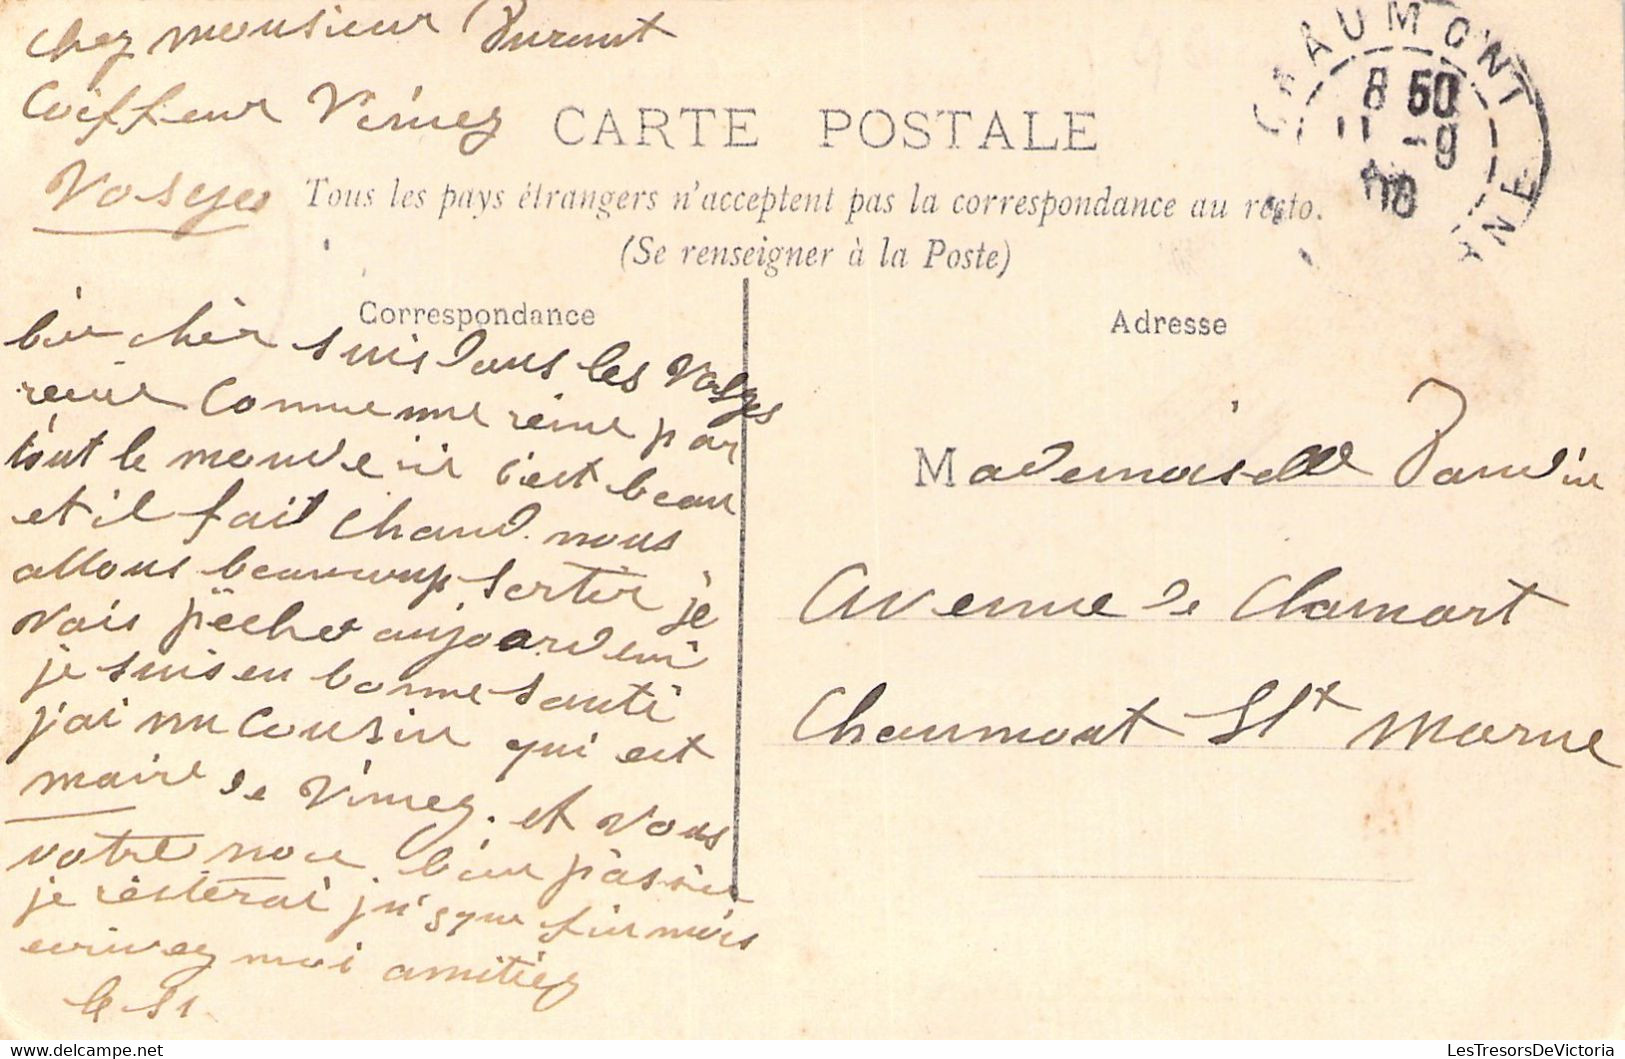 chez monsieur Durant
Coiffeur Vimey
Vosges
CARTE POSTALE
Tous les pays étrangers n'acceptent pas la correspondance au recto.
(Se renseigner à la Poste)
CHAUMONT
8 50
11 -9
08
NE
Correspondance
Adresse
suis dans les Vosges
comme une reine par
tout le monde ici c'est beau
et il fait chaud. nous
allons beaucoup sortir je
vais pêcher aujourdeui
je suis en bonne santé
j'ai un cousin qui est
maire de Vimey. et vous
votre bien passée
je resterai jusque fin mois
ecrivez moi amitiez
Mademoiselle Dandin
Avenue de Clamart
Chaumont Ht Marne
LesTresorsDeVictoria